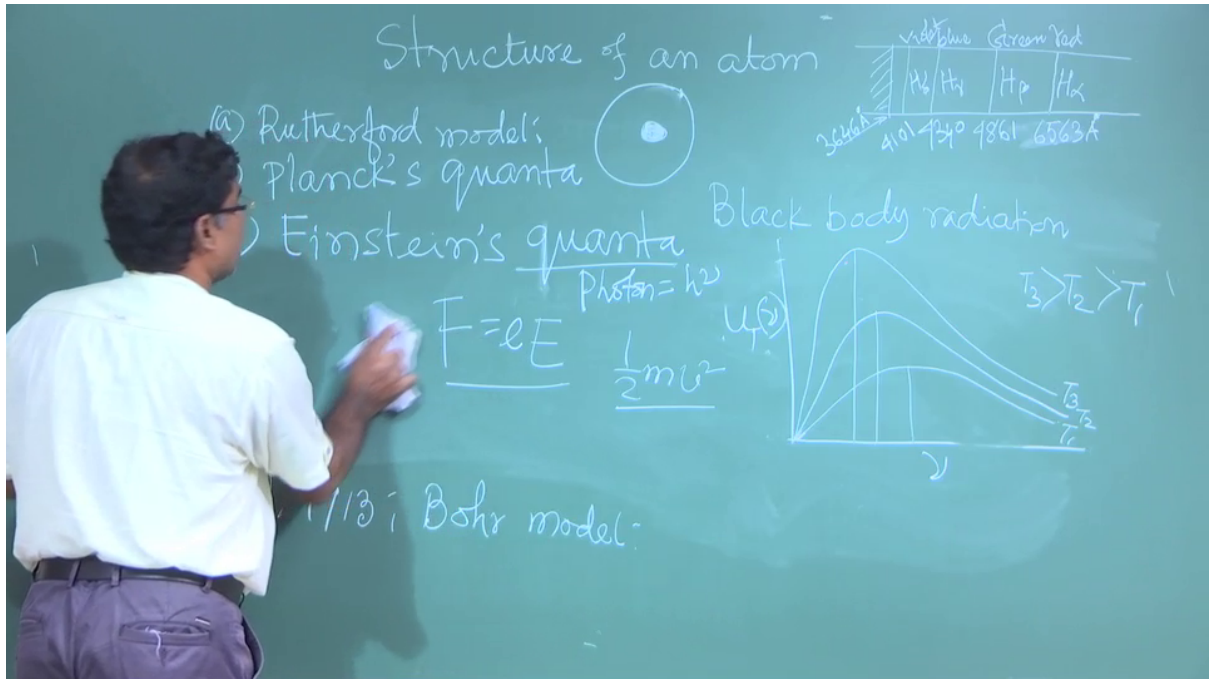 Structure of an atom
(a) Rutherford model:
) Planck's quanta
) Einstein's quanta
Photon = hν
F = eE
1/2 mv²
1/13 ; Bohr model:
violet blue Green Red
Hδ Hγ Hβ Hα
3646Å 4101 4340 4861 6563Å
Black body radiation
T₃ > T₂ > T₁
U_T(ν)
T₃
T₂
T₁
ν